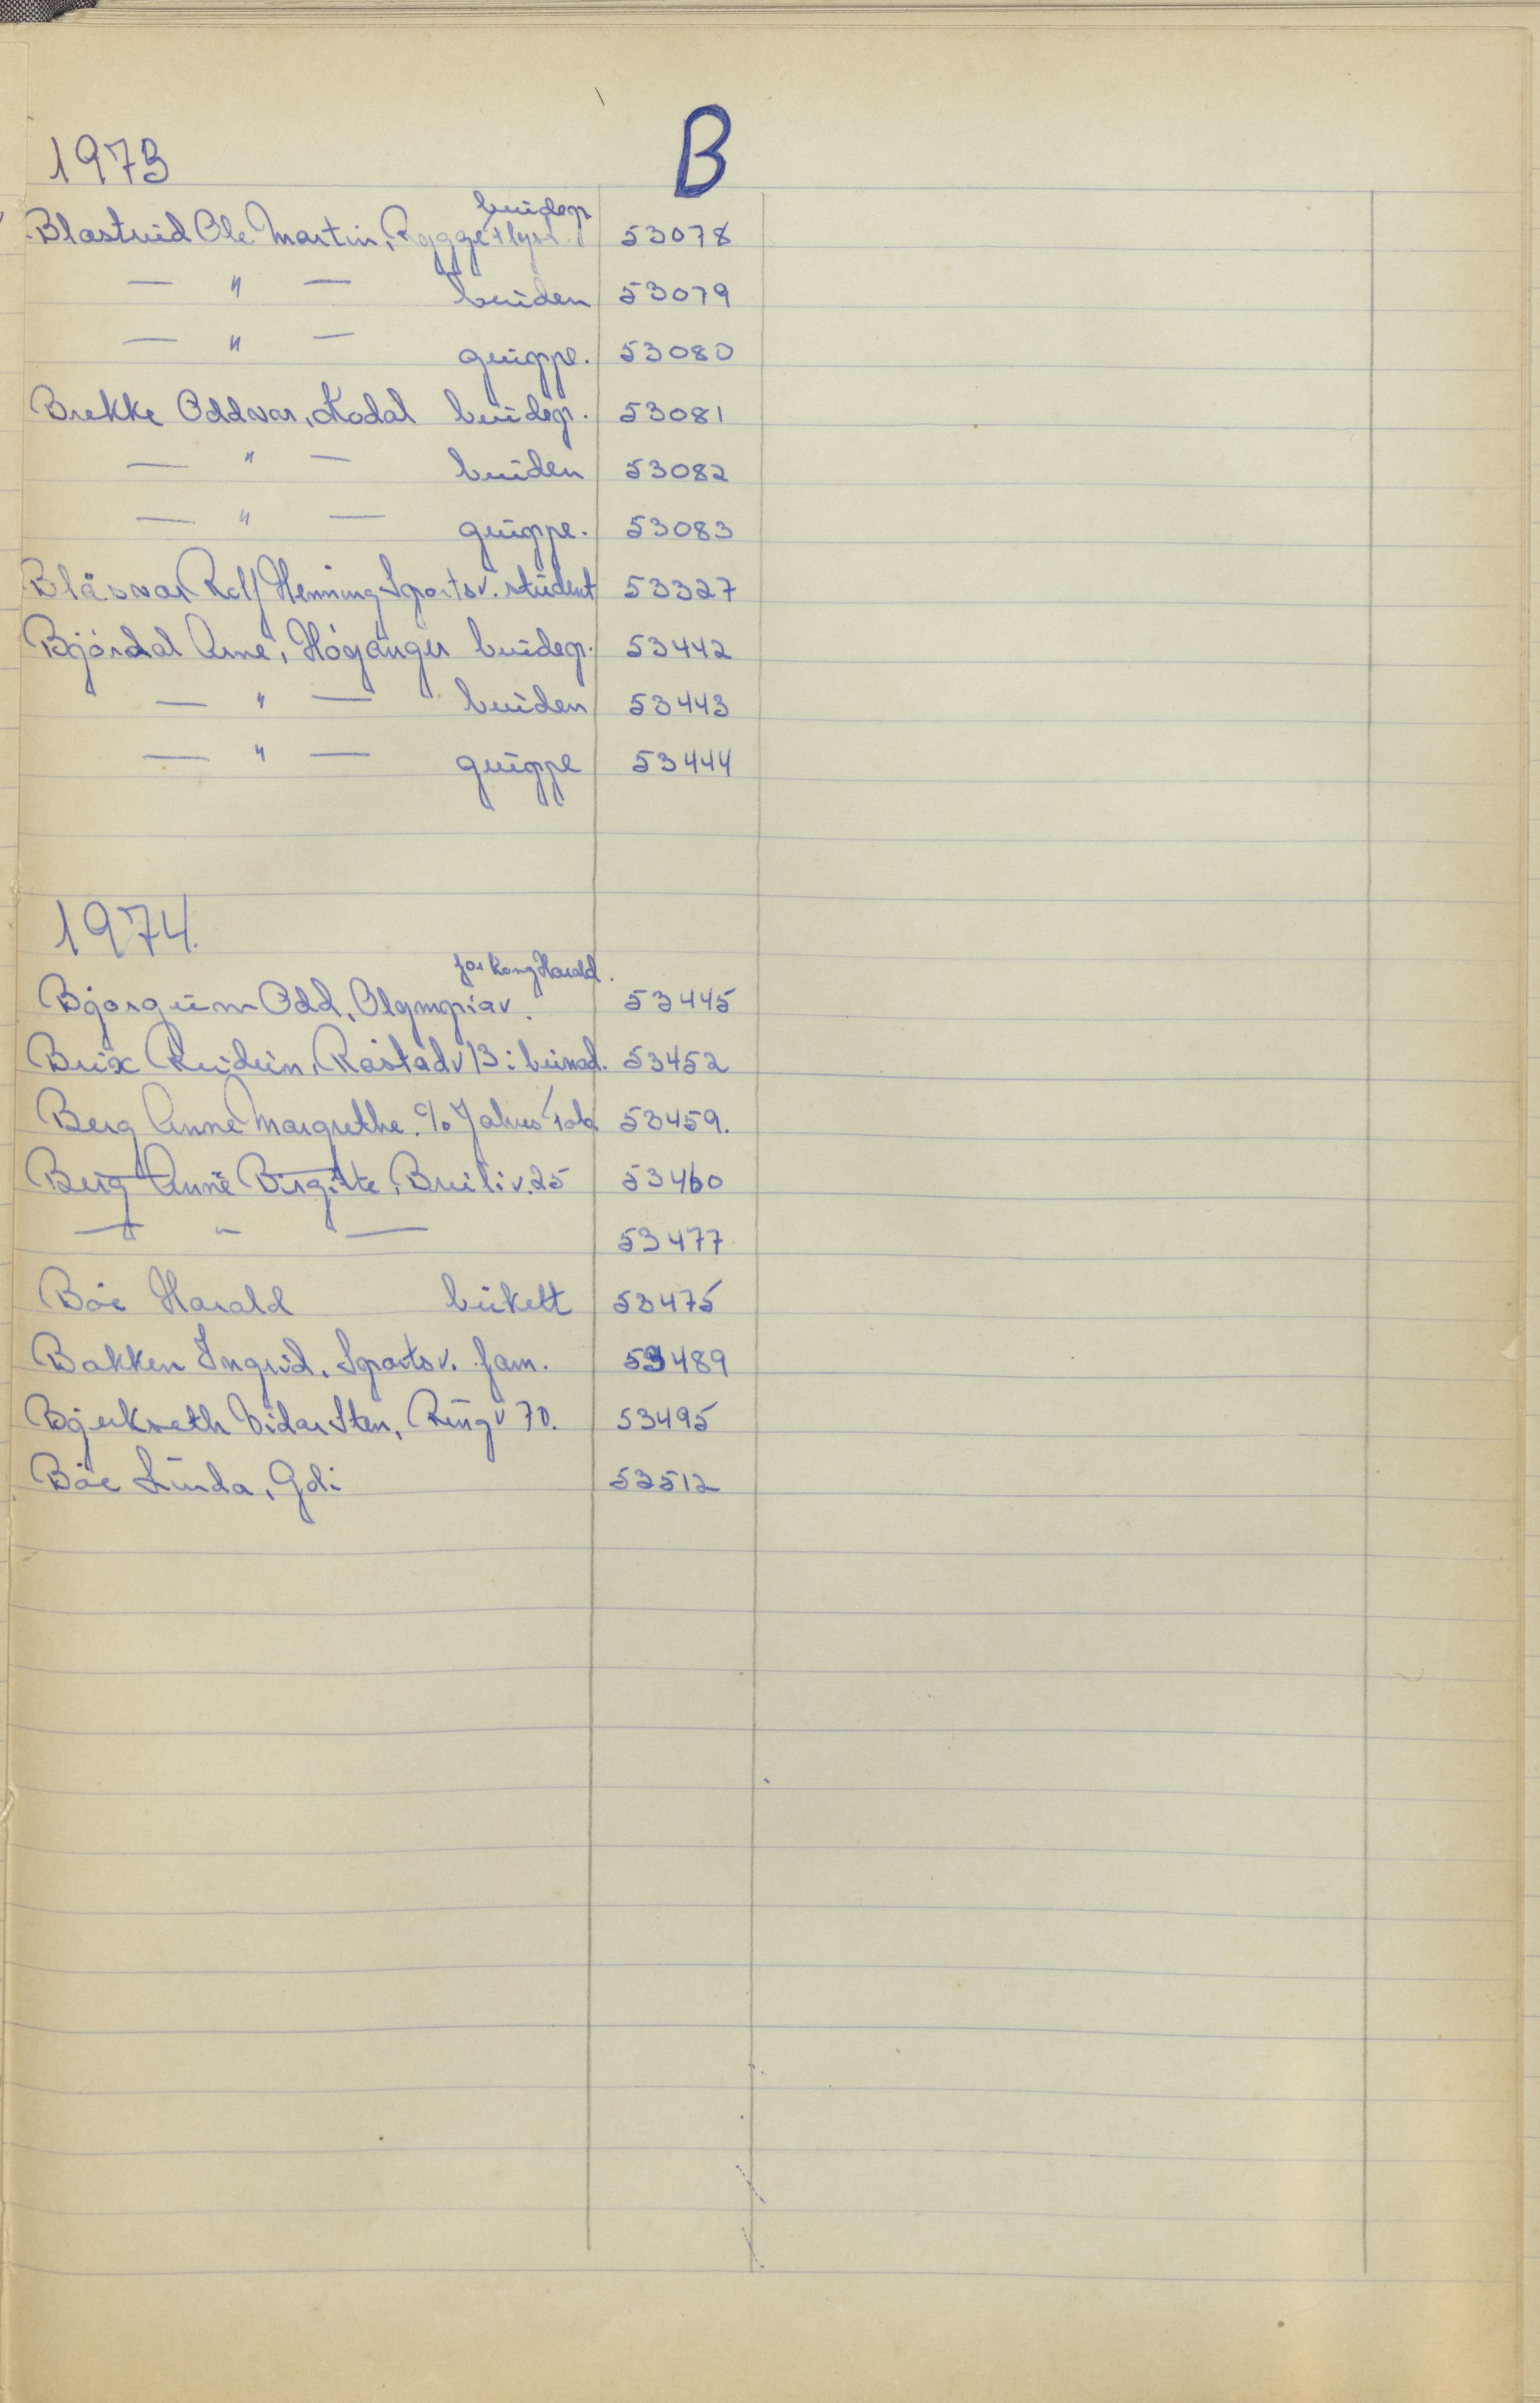 B
1973
brudep.
Blastveid Ole Martin, Rygge flyst. 53078
— " — bruden 53079
— " — gruppe. 53080
Brekke Oddvar, Kodal brudep. 53081
— " — bruden 53082
— " — gruppe. 53083
Blåsvar Rolf Henning Sportsv. student 53327
Bjørdal Arne, Høyanger brudep. 53442
— " — bruden 53443
— " — gruppe 53444
1974.
for Kong Harald.
Bjørgum Odd, Olympiav. 53445
Brix Reidun, Råstadv 13 : 53452
Berg Anne Margrethe. c/o Jahres 53459.
Berg Anne Birgitte, Breiliv. 25 53460
— " — 53477
Bøe Harald bukett 53475
Bakken Ingrid, Sportsv. fam. 53489
Bjerkseth Vidar Sten, Ringv 70. 53495
Bøe Linda, Gdi 53512